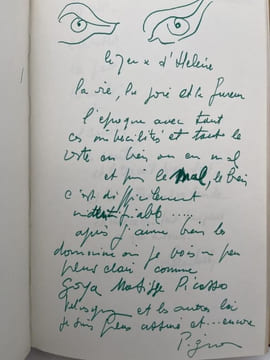 les yeux d'Hélène
la vie, la joie et la fureur
l'époque avec tout
ces imbécilités et tout le
reste en bien ou en mal
et puis le mal, le bien
c'est difficilement
identifiable .....
après j'aime bien les
domaines où je vois un peu
plus clair comme
Goya Matisse Picasso
et les autres là
je suis plus assuré et... encore
Pignon